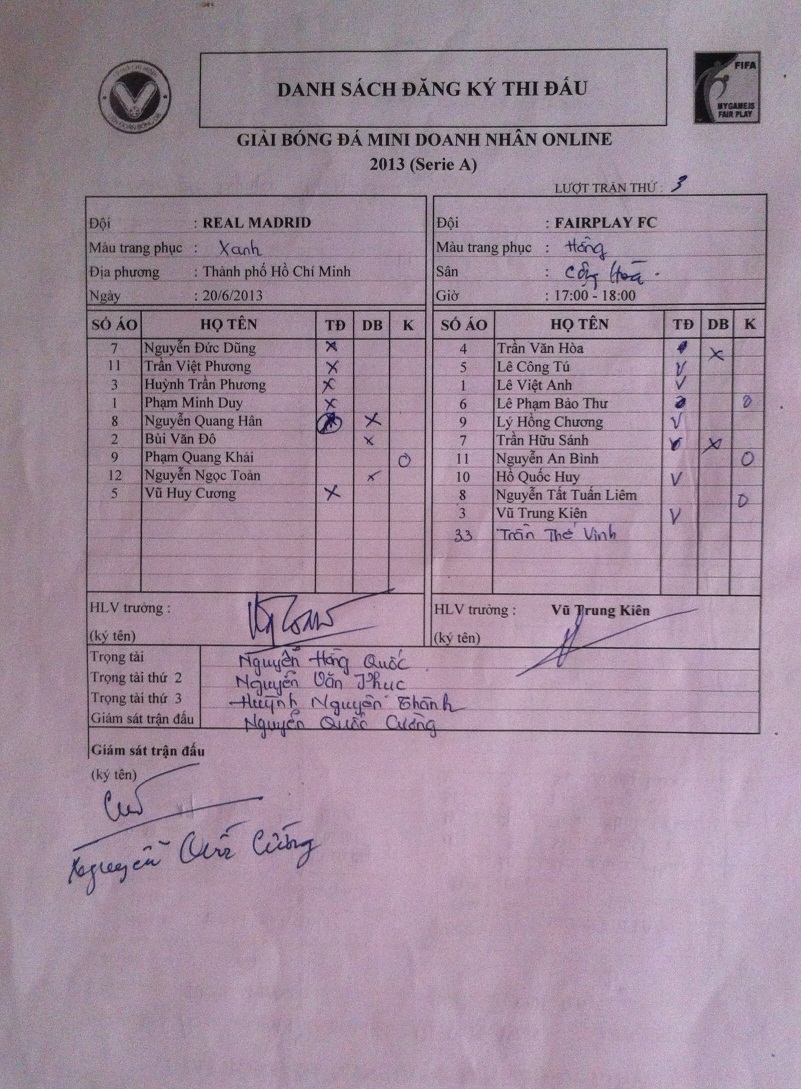 FIFA
MYGAMES
FAIR PLAY
DANH SÁCH ĐĂNG KÝ THI ĐẤU
GIẢI BÓNG ĐÁ MINI DOANH NHÂN ONLINE
2013 (Serie A)
LƯỢT TRẬN THỨ : 3
Đội : REAL MADRID
Màu trang phục : Xanh
Địa phương : Thành phố Hồ Chí Minh
Ngày : 20/6/2013
Đội : FAIRPLAY FC
Màu trang phục : Hồng
Sân : Cộng Hoà
Giờ : 17:00 - 18:00
SỐ ÁO HỌ TÊN TĐ DB K
7 Nguyễn Đức Dũng X
11 Trần Việt Phương X
3 Huỳnh Trần Phương X
1 Phạm Minh Duy X
8 Nguyễn Quang Hân X
2 Bùi Văn Đô X
9 Phạm Quang Khải O
12 Nguyễn Ngọc Toàn X
5 Vũ Huy Cương X
SỐ ÁO HỌ TÊN TĐ DB K
4 Trần Văn Hòa X
5 Lê Công Tú V
1 Lê Việt Anh V
6 Lê Phạm Bảo Thư O
9 Lý Hồng Chương V
7 Trần Hữu Sánh X
11 Nguyễn An Bình O
10 Hồ Quốc Huy V
8 Nguyễn Tất Tuấn Liêm O
3 Vũ Trung Kiên V
33 Trần Thế Vinh
HLV trưởng :
(ký tên)
HLV trưởng : Vũ Trung Kiên
(ký tên)
Trọng tài Nguyễn Hồng Quốc
Trọng tài thứ 2 Nguyễn Văn Phúc
Trọng tài thứ 3 Huỳnh Nguyễn Thành
Giám sát trận đấu Nguyễn Quốc Cường
Giám sát trận đấu
(ký tên)
Nguyễn Quốc Cường